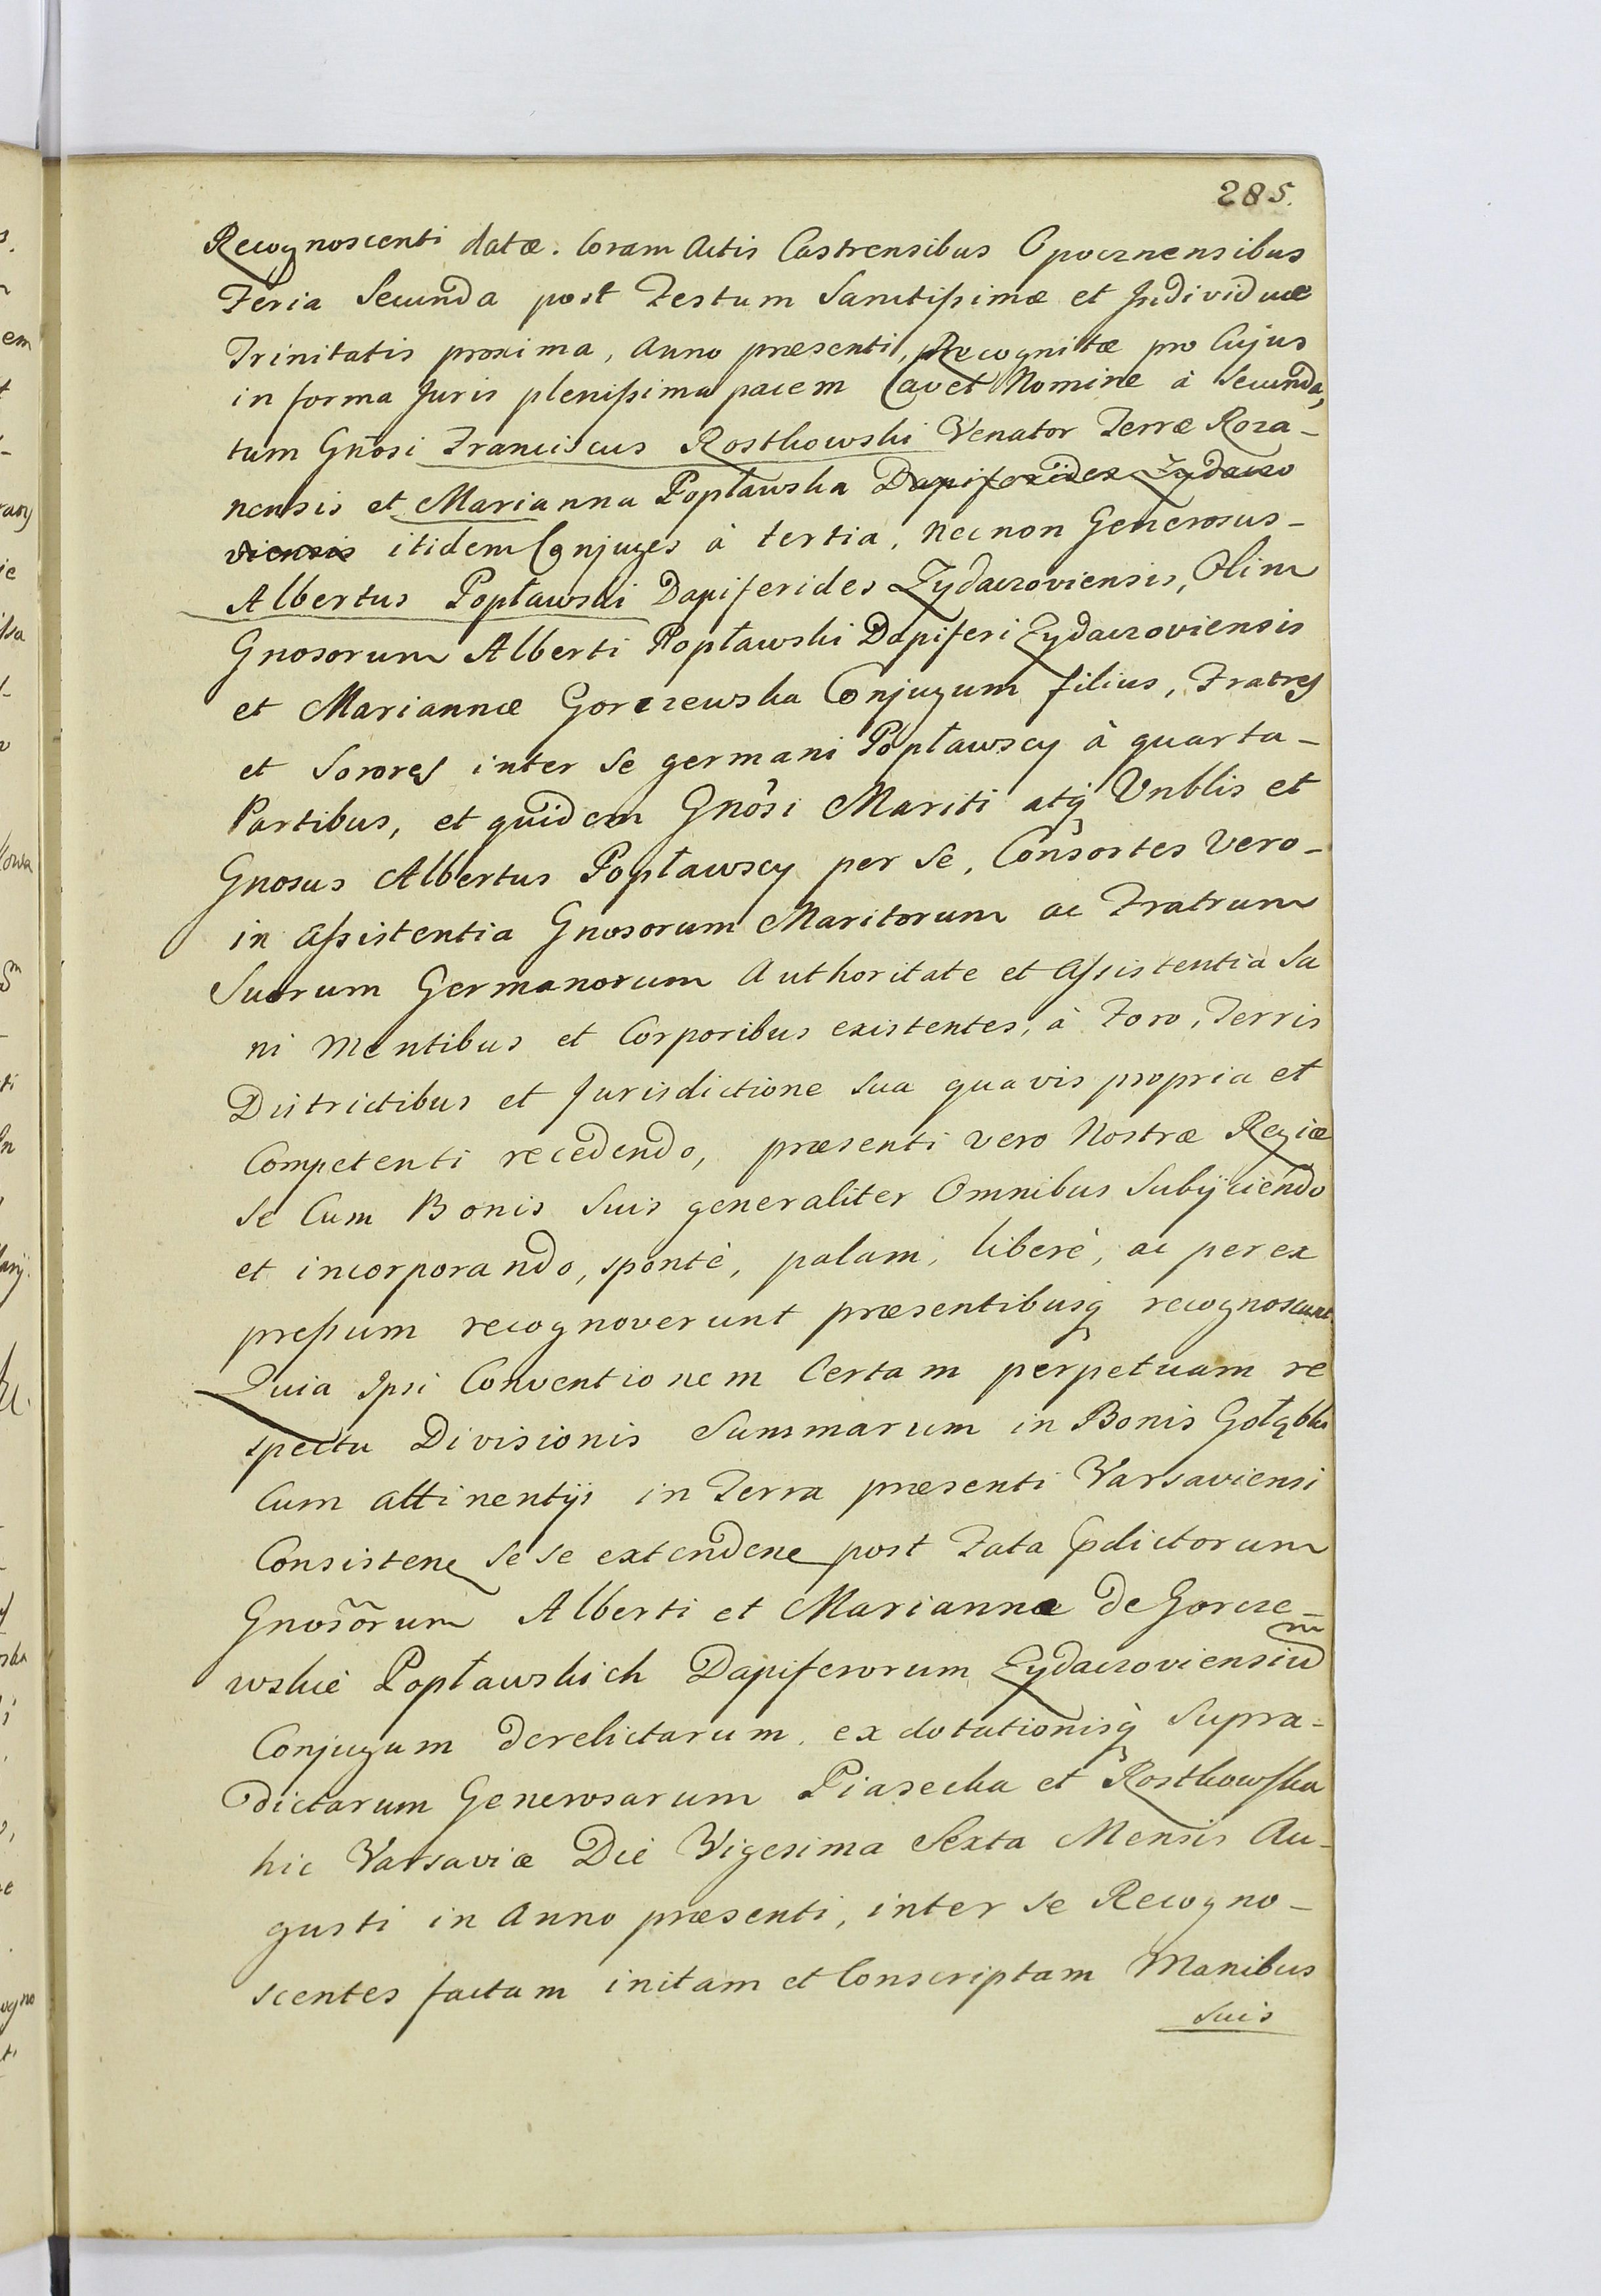 285.
Recognoscenti datæ. Coram Actis Castrensibus Opocznensibus
Feria Secunda post Festum Sanctissimæ et Individuæ
Trinitatis proxima, Anno præsenti, Recognitæ pro Cujus
in forma Juris plenissima pacem Cavet Nomine à Secunda,
tum Gnõsi Franciscus Rostkowski Venator Terræ Roza-
nensis et Marianna Popławska Dapiferides Zydaczo
viensis itidem Conjuges à tertia, necnon Generosus-
Albertus Popławski Dapiferides Zydaczoviensis, Olim
Gnosorum Alberti Popławski Dapiferi Zydaczoviensis
et Mariannæ Gorczewska Conjugum filius, Fratres
et Sorores inter se germani Popławscy à quarta-
Partibus, et quidem Gnõsi Mariti atq Vnblis et
Gnosus Albertus Popławscy per se, Consortes Vero-
in Assistentia Gnosorum Maritorum ac Fratrum
Suorum Germanorum Authoritate et Assistentia Sa
ni Mentibus et Corporibus existentes, à Foro, Terris
Districtibus et Jurisdictione sua quavis propria et
Competenti recedendo, præsenti vero Nostræ Regiæ
se Cum Bonis Suis generaliter Omnibus Subijciendo
et incorporando, spontè, palam, liberè, ac per ex
pressum recognoverunt præsentibusq recognoscunt
Quia Ipsi Conventionem Certam perpetuam re
spectu Divisionis Summarum in Bonis Gołąbki
Cum attinentijs in Terra præsenti Varsaviensi
Consisten se se extenden post Fata pdictorum
Gnosõrum Alberti et Mariannæ de Gorcze-
wskie Popławskich Dapiferorum Zydaczoviensium
Conjugum derelictarum, ex dotationisq Supra-
dictarum Generosarum Piasecka et Rostkowska
hic Varsaviæ Die Vigesima Sexta Mensis Au-
gusti in Anno præsenti, inter se Recogno-
scentes factam initam et Conscriptam Manibus
suis